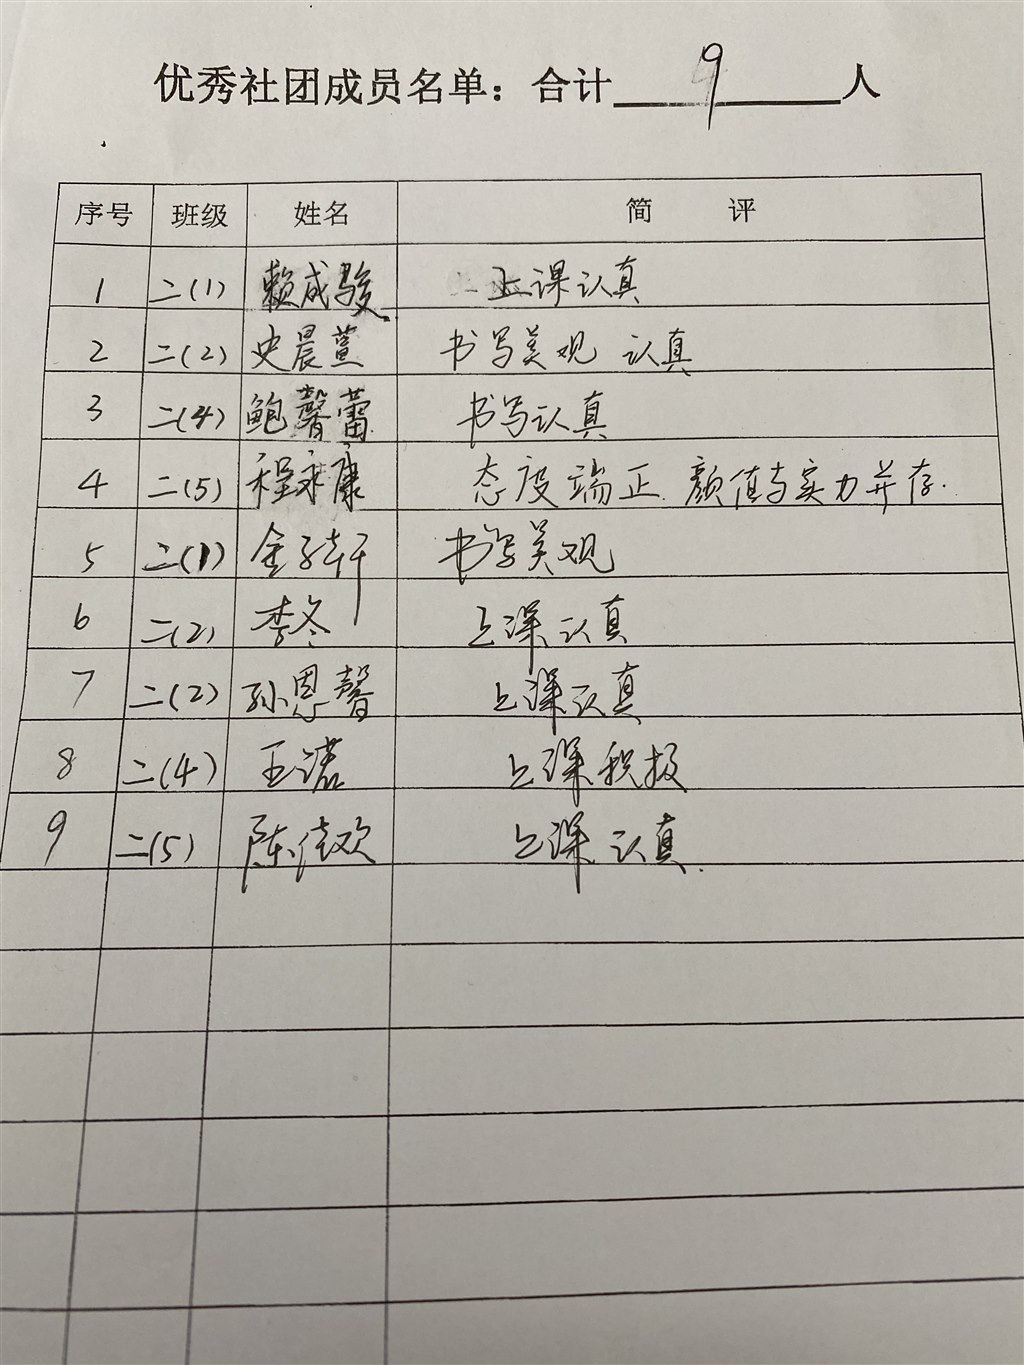 优秀社团成员名单：合计 9 人
序号 班级 姓名 简 评
1 二(1) 赖成骏 上课认真
2 二(2) 史晨萱 书写美观 认真
3 二(4) 鲍馨蕾 书写认真
4 二(5) 程永康 态度端正 颜值与实力并存.
5 二(1) 金子轩 书写美观
6 二(2) 李冬 上课认真
7 二(2) 孙恩馨 上课认真
8 二(4) 王诺 上课积极
9 二(5) 陈佳欢 上课认真.